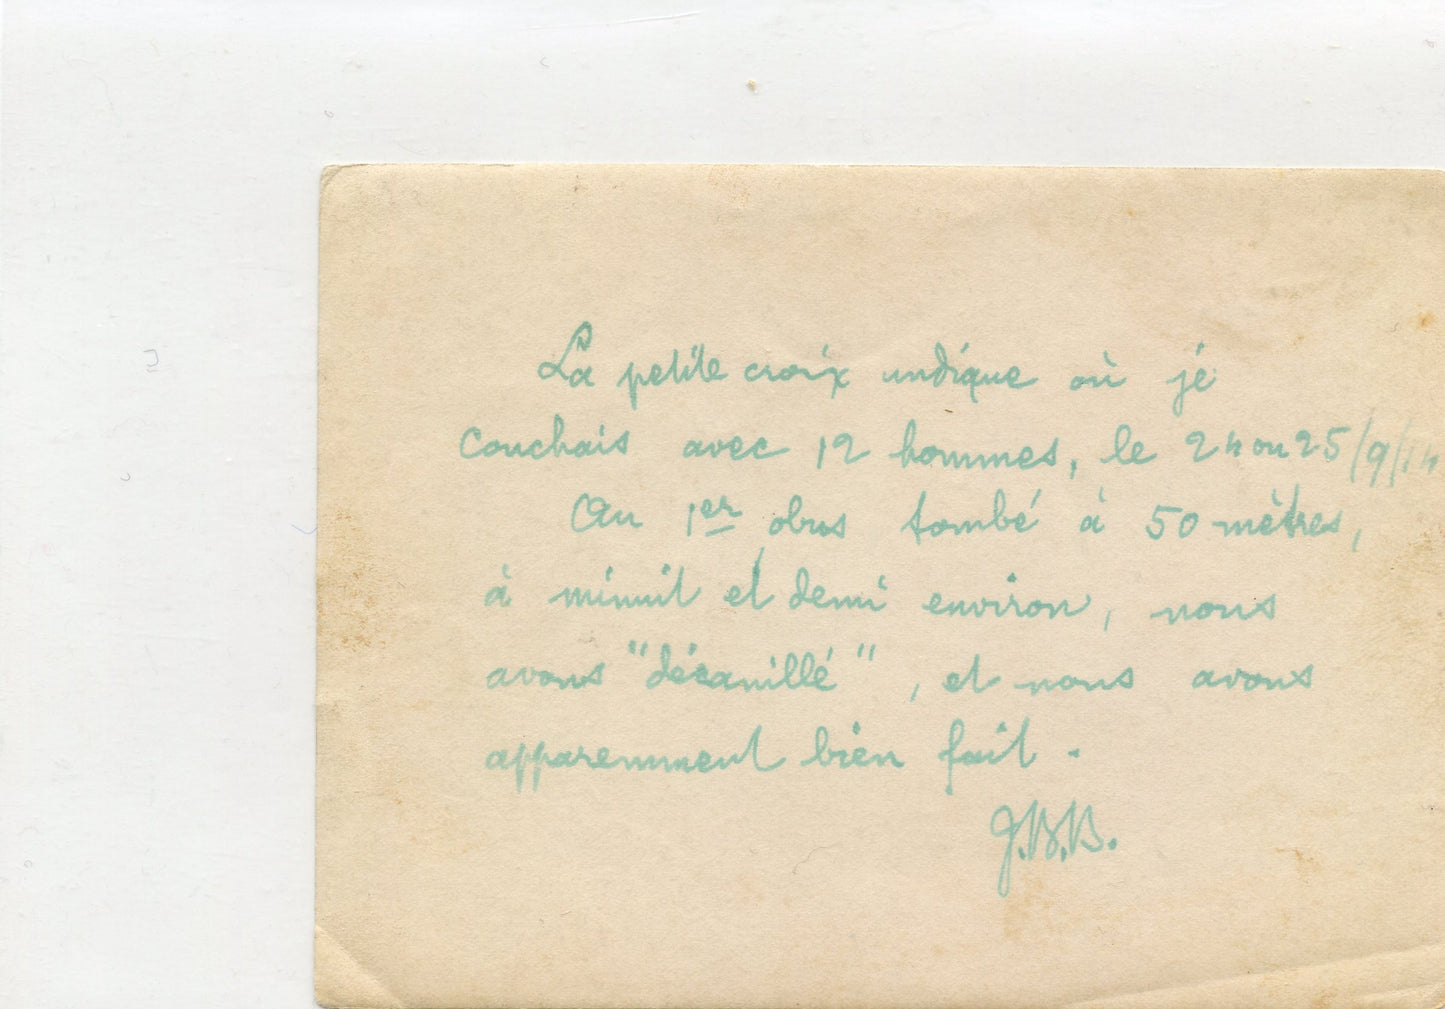 La petite croix indique où je
couchais avec 12 hommes, le 24 ou 25/9/14
Au 1er obus tombé à 50 mètres,
à minuit et demi environ, nous
avons "décanillé", et nous avons
apparemment bien fait.
J.B.B.